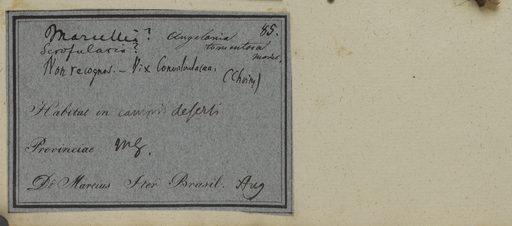 Marcellia? Angelonia 85.
Scrofularia? tomentosa
Non recognos. – Vix Convolvulacea.
(Choisy)
Habitat in campis deserti
Provinciae MG.
Dr Martius Iter Brasil. Aug